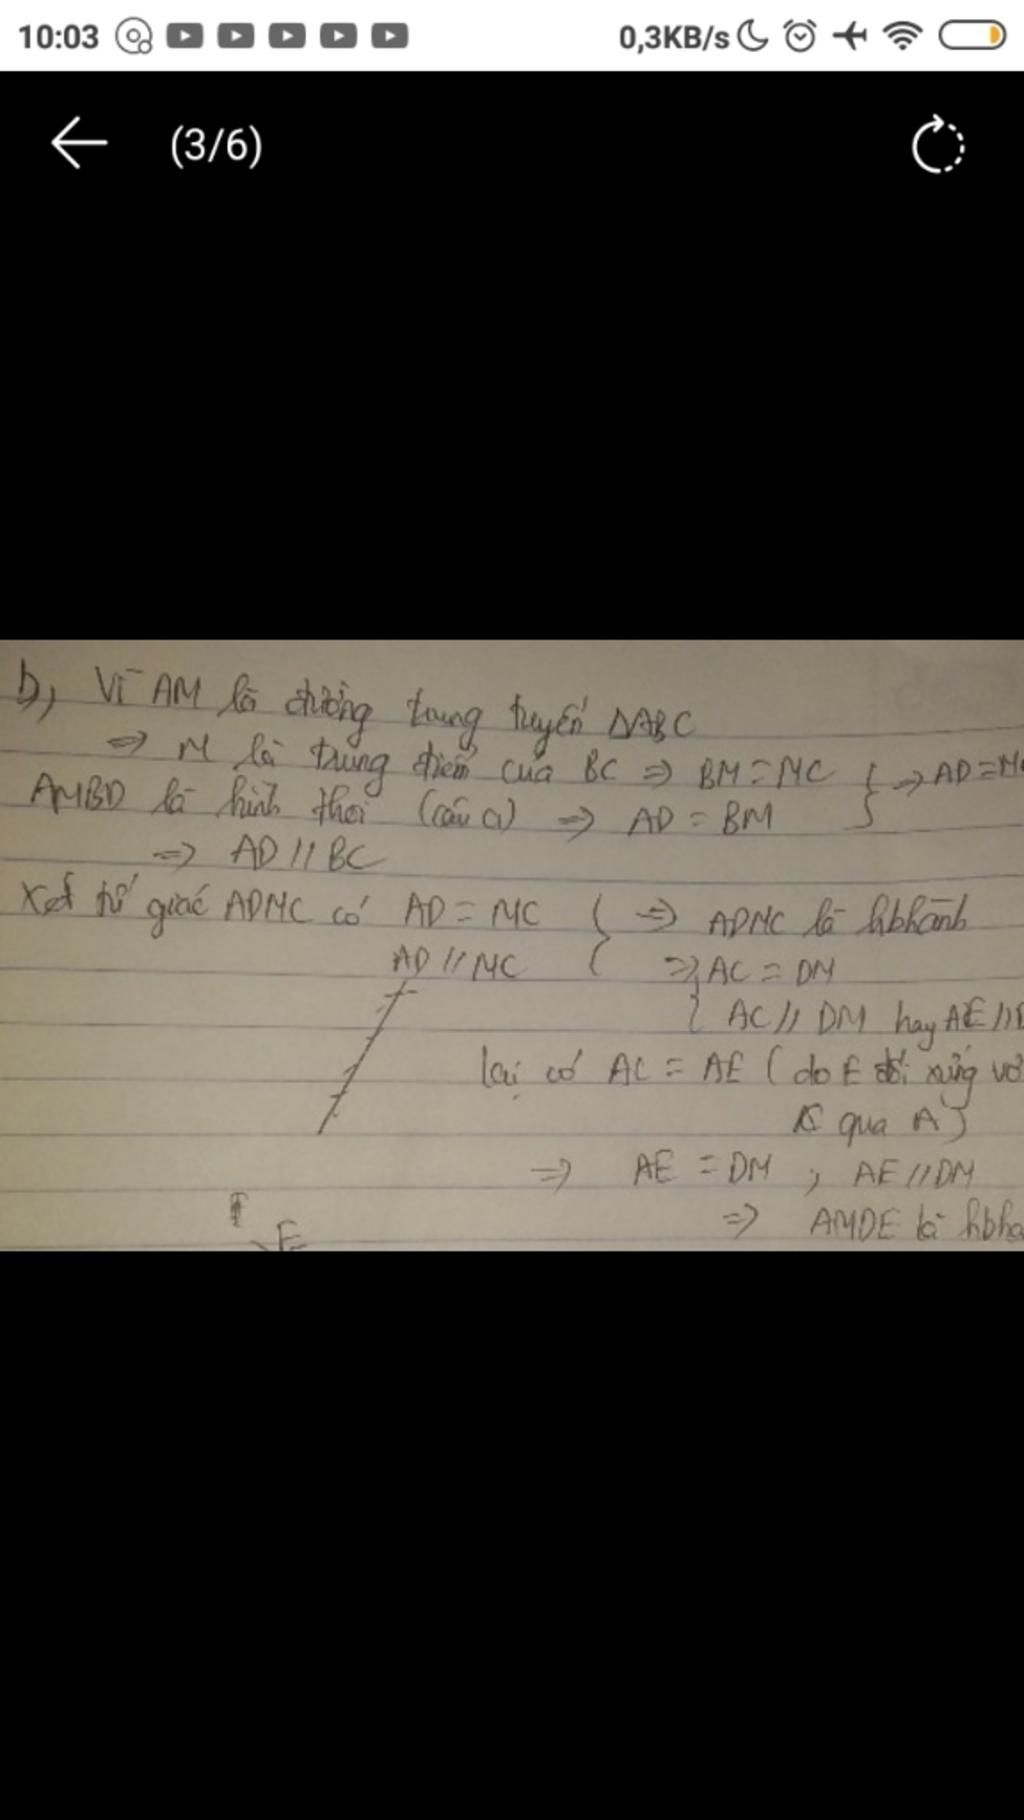 10:03 0,3KB/s
(3/6)
b, Vì AM là đường trung tuyến ΔABC
=> M là trung điểm của BC => BM = MC } => AD = M
AMBD là hình thoi (câu a) => AD = BM
=> AD // BC
Xét tứ giác ADMC có AD = MC { => ADMC là hbhành
AD // MC => AC = DM
{ AC // DM hay AE //
lại có AC = AE (do E đối xứng vớ
C qua A)
=> AE = DM , AE // DM
=> AMDE là hbhà
E